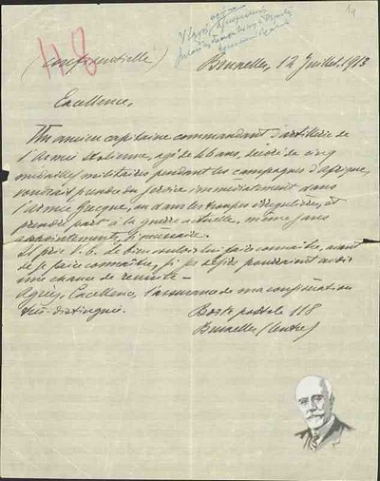 118
(Confidentielle)
Bruxelles, 12 Juillet, 1913
Excellence,
Un ancien capitaine commandant d'artillerie de
l'Armée Italienne, agé de 46 ans, décoré de cinq
médailles militaires pendant les campagnes d'Afrique,
voudrait prendre du service immédiatement dans
l'Armée Grecque, ou dans les troupes irregulieres, et
prendre part à la guerre actuelle, même sans
appointements,
Il prie V.E. de bien vouloir lui faire connaître, avant
de se faire connaître, si ses
une chance de réussite —
Agréez, Excellence, l'assurance de ma considération
très-distinguée.
Boste postale 118
Bruxelles (Centre)